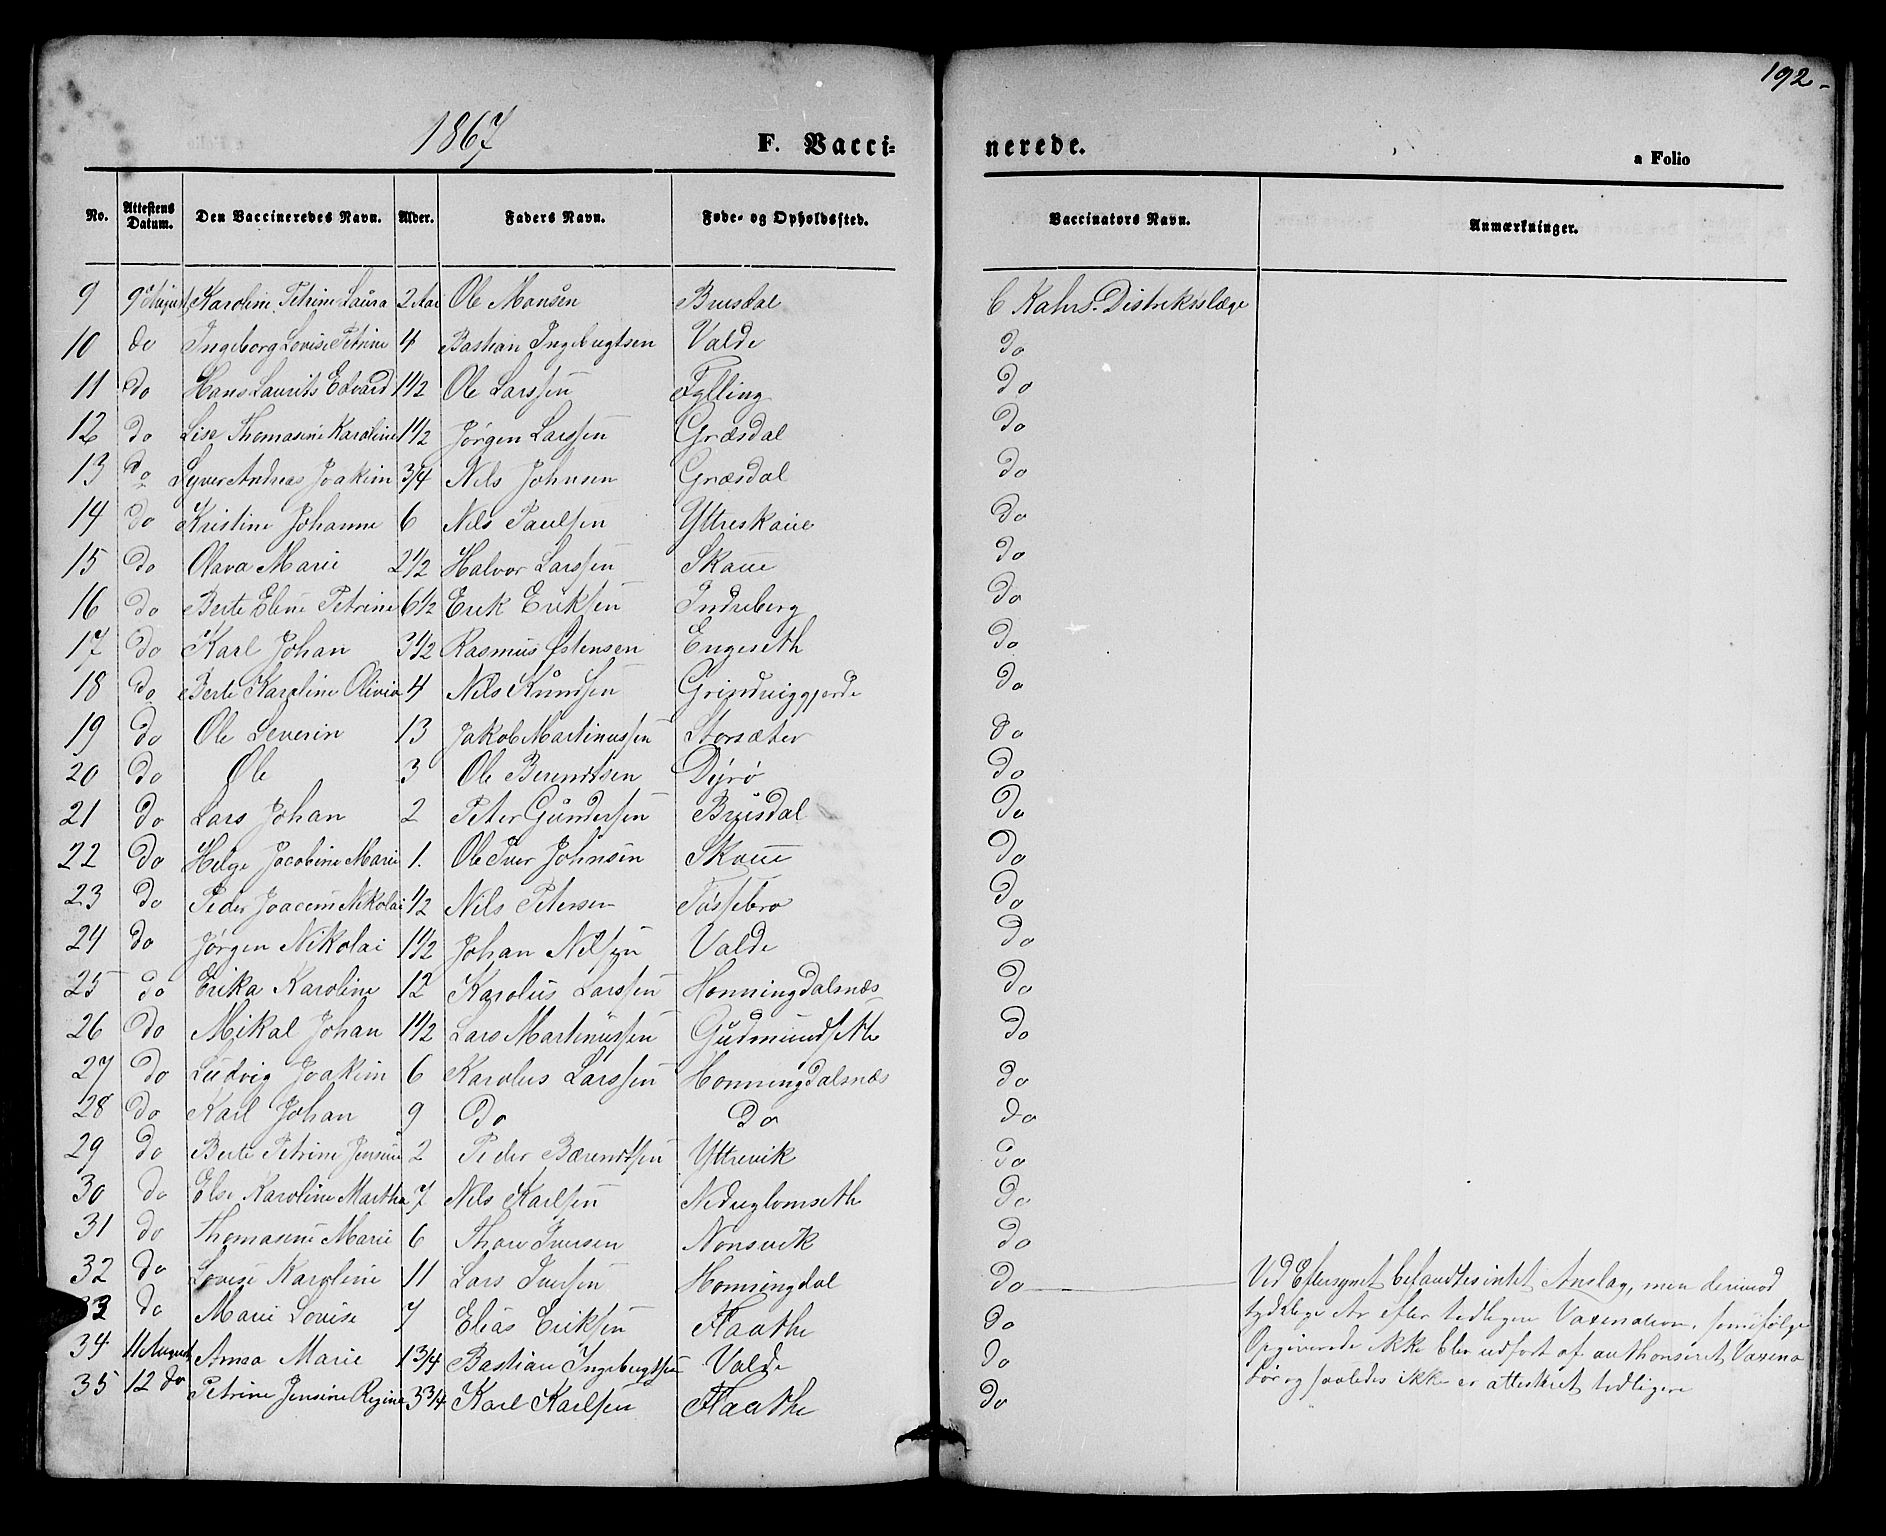 192.
1867
F. Vacci= nerede.
a Folio
No. Attestens Datum. Den Vaccineredes Navn. Alder. Faders Navn. Føde- og Opholdssted. Vaccinators Navn. Anmærkninger.
9 9 August Karoline Petrine Laura 2 Aar Ole Monsen Brusdal C Kahrs. Distriktslæge
10 do Ingeborg Lovise Petrine 4 Bastian Ingebrigtsen Valde do
11 do Hans Laurits Edvard 1 1/2 Ole Larssen Fylling do
12 do Lise Thomasine Karoline 1 1/2 Jørgen Larssen Græsdal do
13 do Syver Andreas Joakim 3/4 Nils Johnsen Græsdal do
14 do Kristine Johanne 6 Nils Paulsen Yttreskoue do
15 do Olava Marie 2 1/2 Halvor Larssen Skoue do
16 do Berte Eline Petrine 6 1/2 Erik Eriksen Indreberg do
17 do Karl Johan 3 1/2 Rasmus Østensen Engeseth do
18 do Berte Karoline Olivia 4 Nils Knudsen Grindviggjerde do
19 do Ole Severin 13 Jakob Martinussen Storsæter do
20 do Ole 3 Ole Berendtsen Dyrø do
21 do Lars Johan 2 Peter Gundersen Brusdal do
22 do Helge Jacobine Marie 1. Ole Iver Johnsen Skoue do
23 do Peder Joacim Nikolai 1/2 Nils Petersen Fossebro do
24 do Jørgen Nikolai 1 1/2 Johan Nilsen Valde do
25 do Erika Karoline 12 Karolus Larssen Honningdalsnæs do
26 do Mikal Johan 1 1/2 Lars Martinussen Gudmundseth do
27 do Ludvig Joakim 6 Karolus Larssen Honningdalsnæs do
28 do Karl Johan 9 do do do
29 do Berte Petrine Jensine 2 Peder Bærendtsen Yttrevik do
30 do Else Karoline Martha 7 Nils Karlsen Nedreglomseth do
31 do Thomasine Marie 6 Thore Iversen Nonsvik do
32 do Lovise Karoline 11 Lars Iversen Honningdal do Ved Eftersynet befandtes intet Anslag, men derimod
33 do Marie Lovise 7 Elias Eriksen Flaathe do tydelige Ar efter tidligere Vaxination, som ifølge
34 11 August Anna Marie 1 3/4 Bastian Ingebrigtsen Valde do Opgivende ikke blev udført af authoriseret Vaxina
35 12 do Petrine Jensine Regine 3 3/4 Karl Karlsen Flaathe do tør og saaledes ikke er attesteret tidligere